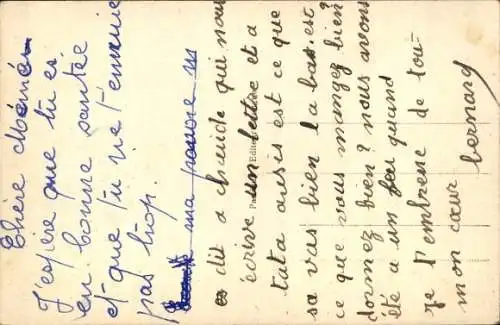 Chère mémé
J'espère que tu es
en bonne santée
et que tu ne t'ennuie
pas trop.
ma
dit a chaude qui nous
écrive un lettre et a
tata ausis est ce que
sa vas bien la bas. est
ce que vous mangez bien?
dormez bien? nous avons
été a un feu quand
je t'embrene de tou
mon cœur bernard